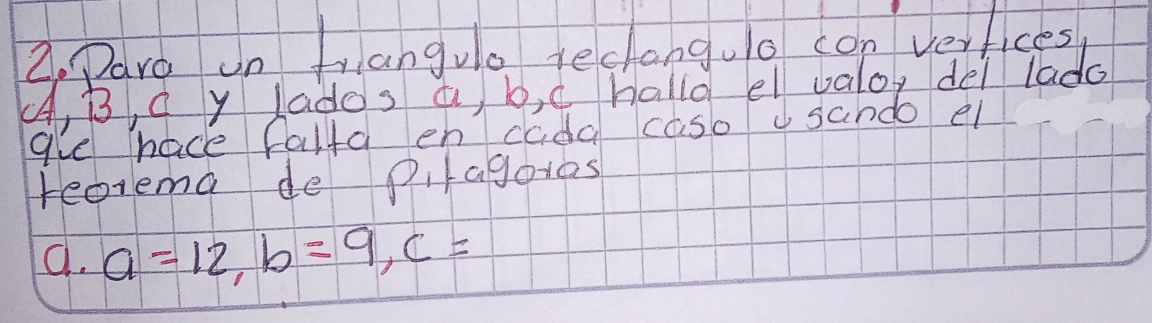 2. Para un triangulo rectangulo con vertices,
A, B, C y lados a, b, c halla el valor del lado
que hace falta en cada caso usando el
teorema de Pitagoras
a. a = 12, b = 9, c =